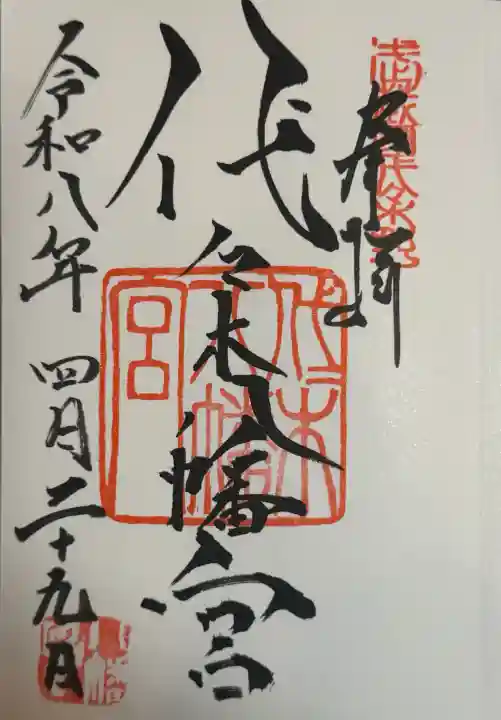 奉拝
代々木八幡宮
令和八年 四月二十九日
代々木
八幡
宮